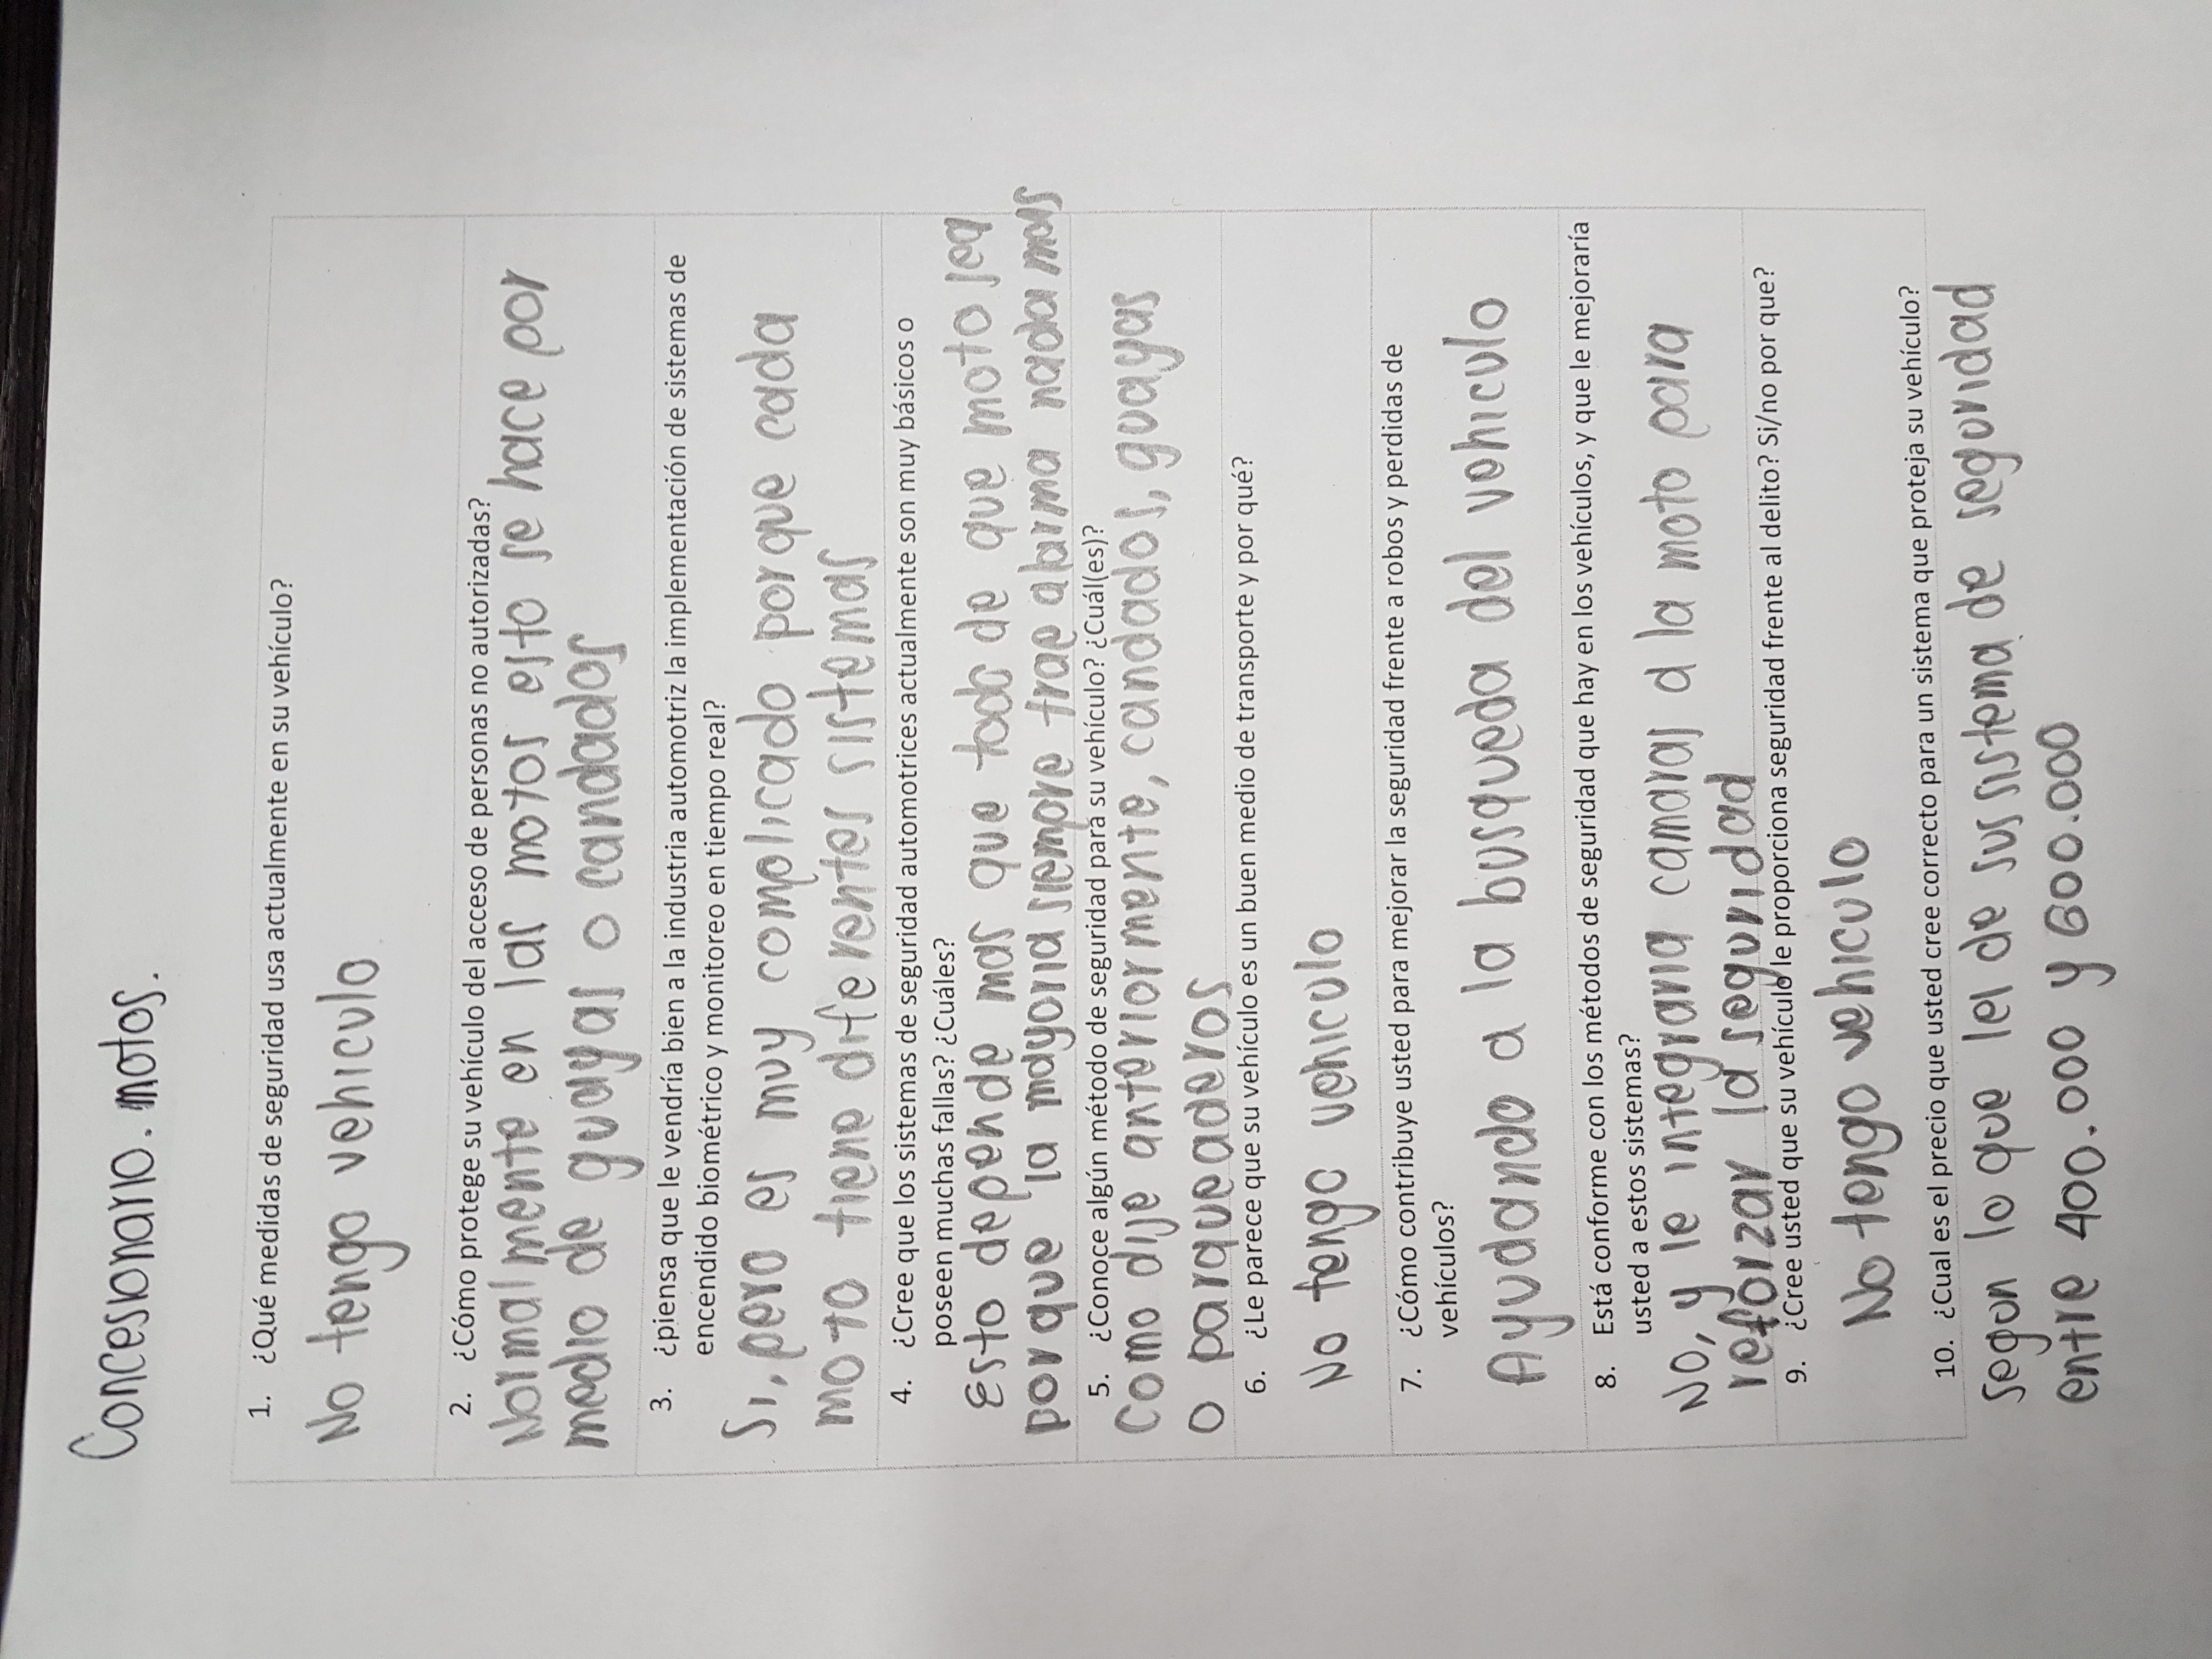 Concesionario. motos.
1. ¿Qué medidas de seguridad usa actualmente en su vehículo?
No tengo vehiculo
2. ¿Cómo protege su vehículo del acceso de personas no autorizadas?
Normalmente en las motos esto se hace por
medio de guayas o candados
3. ¿piensa que le vendría bien a la industria automotriz la implementación de sistemas de
encendido biométrico y monitoreo en tiempo real?
Si, pero es muy complicado por que cada
moto tiene diferentes sistemas
4. ¿Cree que los sistemas de seguridad automotrices actualmente son muy básicos o
poseen muchas fallas? ¿Cuáles?
Esto depende mas que todo de que moto sea
por que la mayoria siempre trae alarma nada mas
5. ¿Conoce algún método de seguridad para su vehículo? ¿Cuál(es)?
Como dije anteriormente, candados, guayas
o parqueaderos
6. ¿Le parece que su vehículo es un buen medio de transporte y por qué?
No tengo vehiculo
7. ¿Cómo contribuye usted para mejorar la seguridad frente a robos y perdidas de
vehículos?
Ayudando a la busqueda del vehiculo
8. Está conforme con los métodos de seguridad que hay en los vehículos, y que le mejoraría
usted a estos sistemas?
No, y le integraria camaras a la moto para
reforzar la seguridad
9. ¿Cree usted que su vehículo le proporciona seguridad frente al delito? Si/no por que?
No tengo vehiculo
10. ¿Cual es el precio que usted cree correcto para un sistema que proteja su vehículo?
segun lo que lei de sus sistema de seguridad
entre 400.000 y 600.000